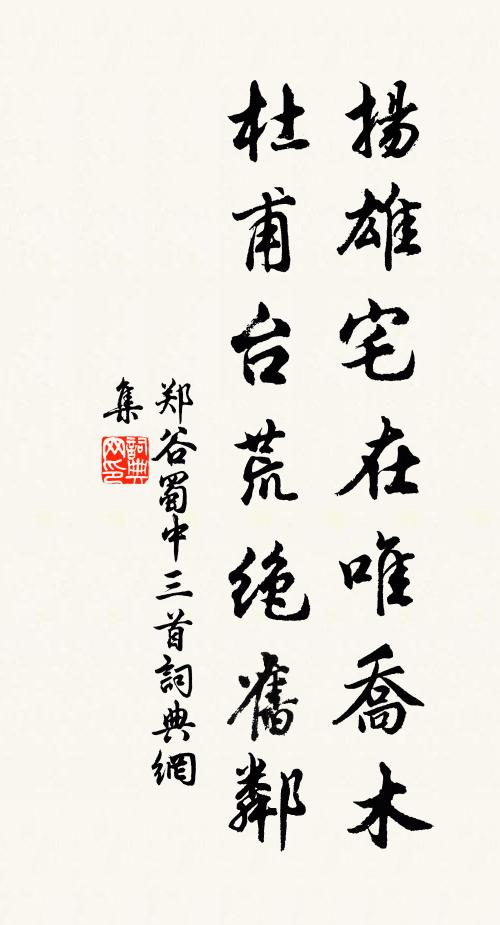 揚雄宅在唯喬木
杜甫台荒絶舊鄰
郑谷蜀中三首詞典網
集
詞典
网印